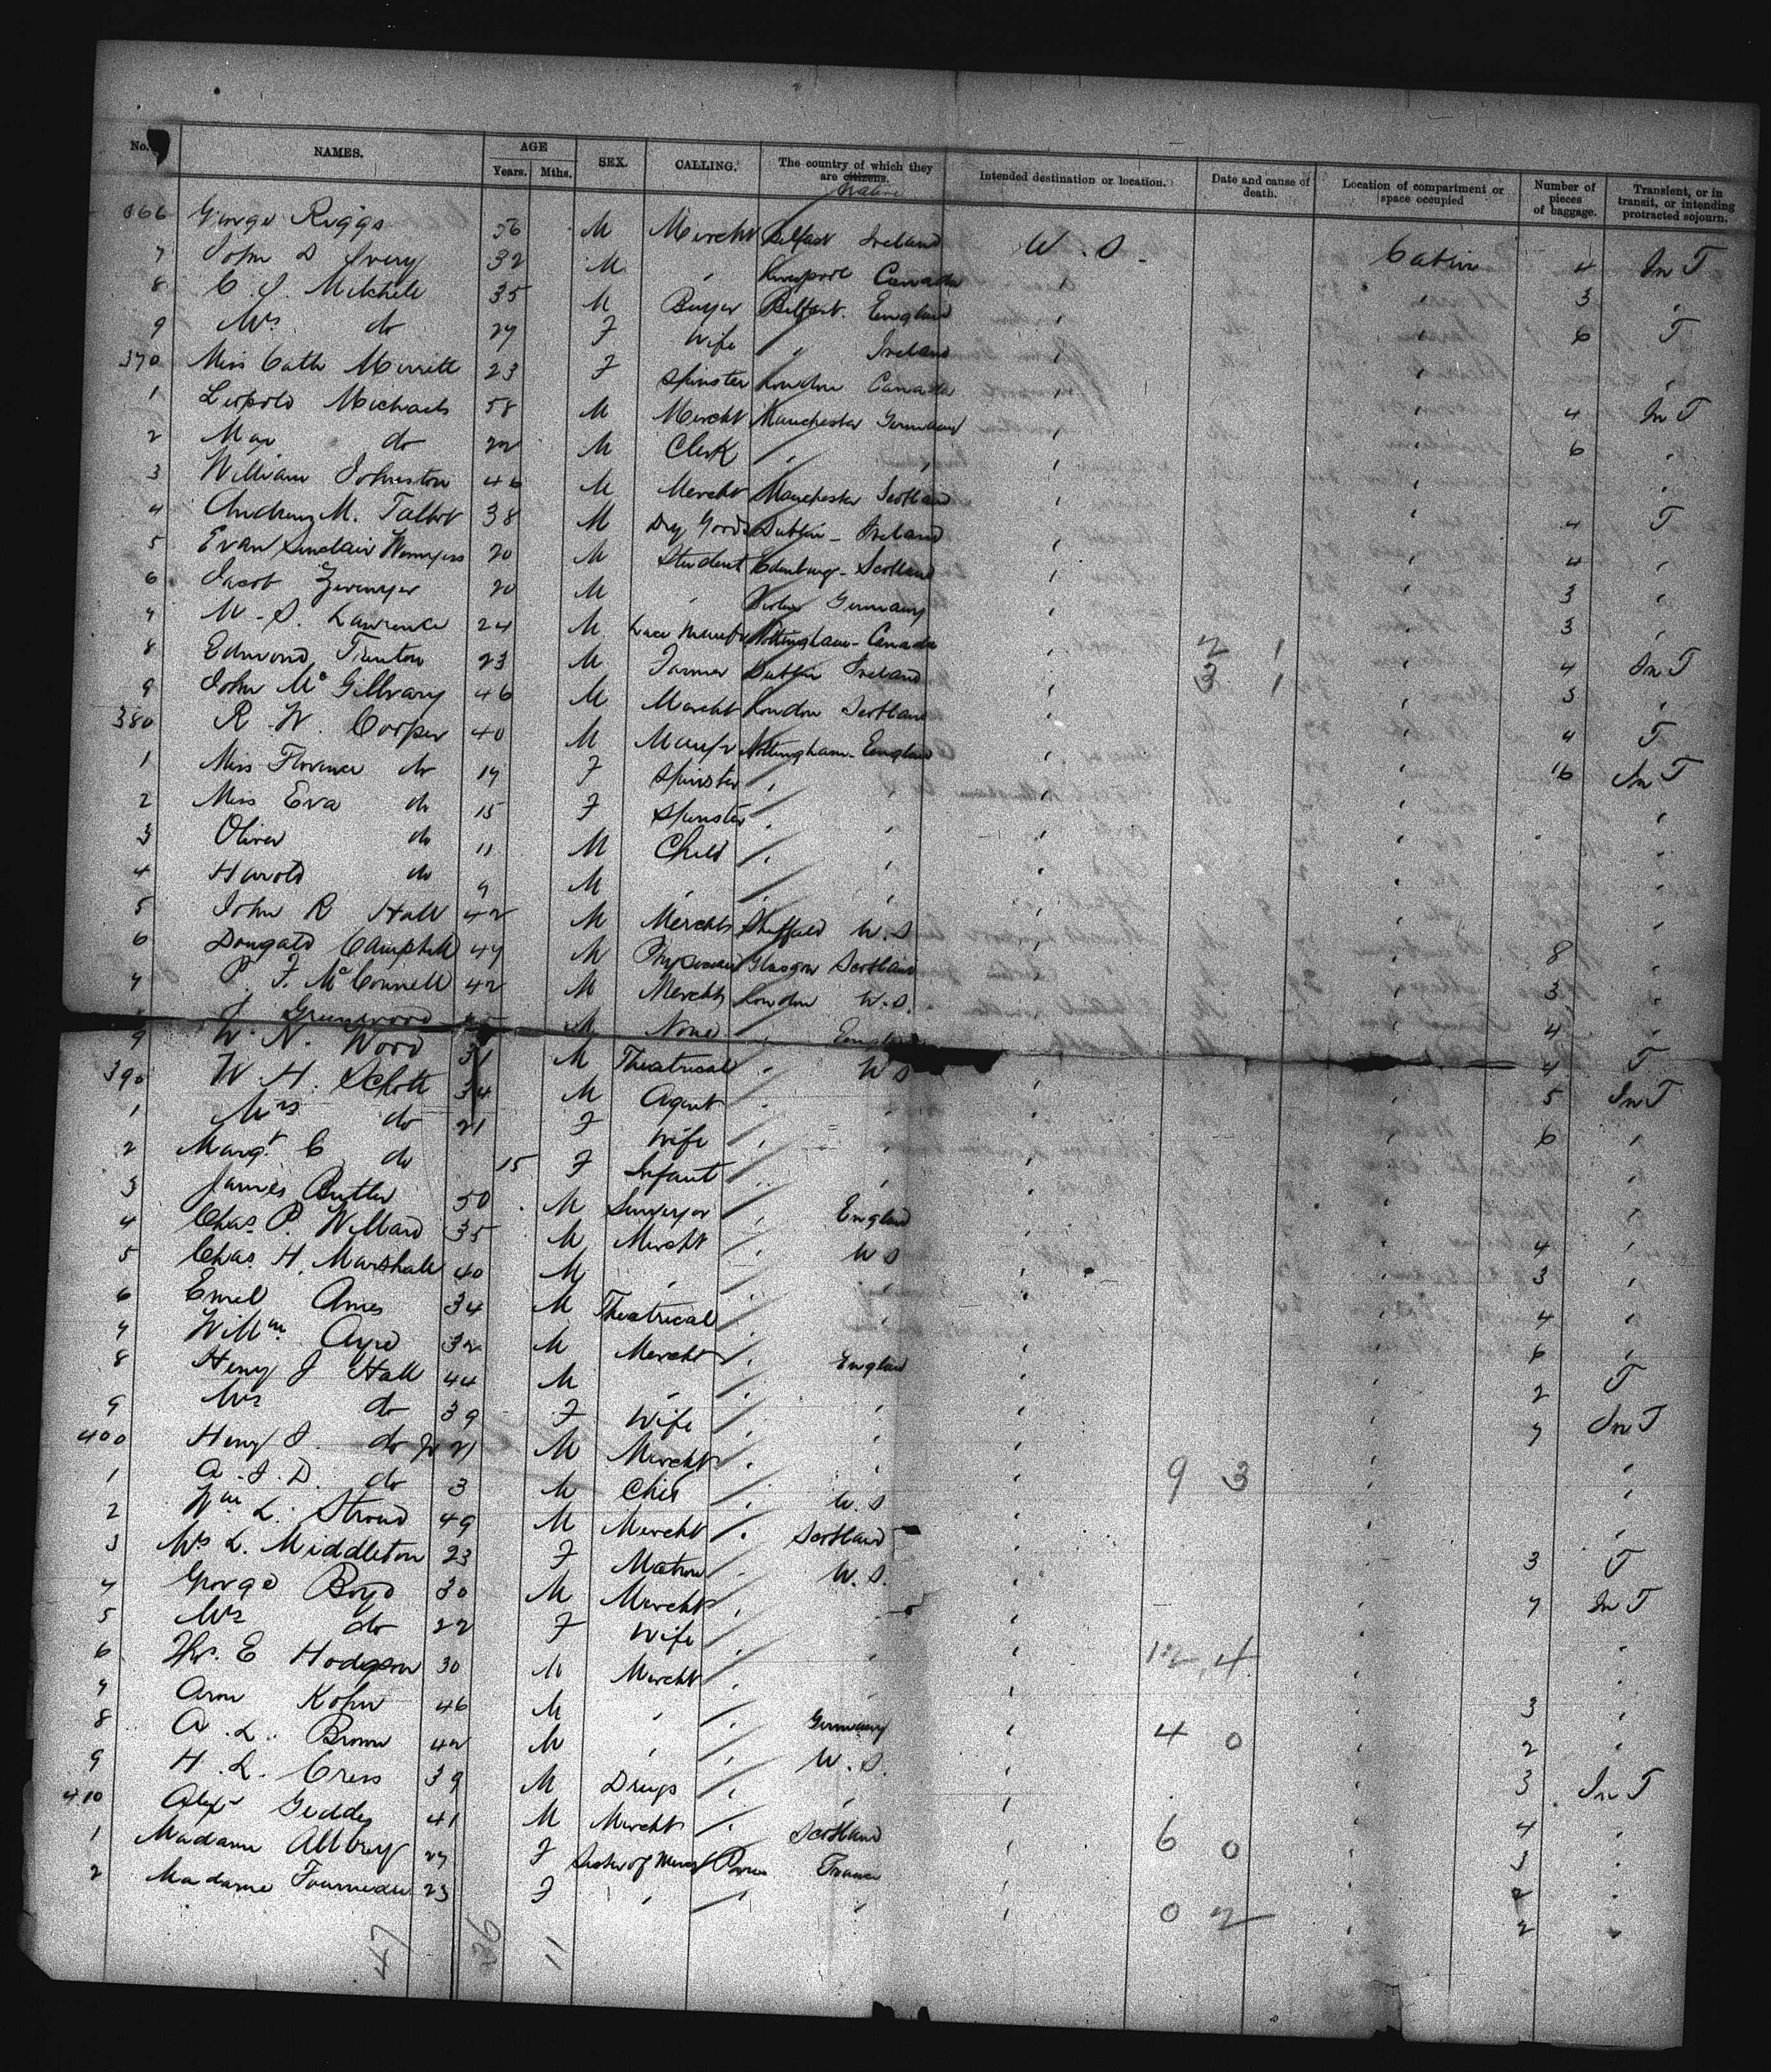 No. NAMES. AGE Years. Mths. SEX. CALLING. The country of which they are citizens. Native Intended destination or location. Date and cause of death. Location of compartment or space occupied Number of pieces of baggage. Transient, or in transit, or intending protracted sojourn.
366 George Riggs 56 M Mercht Belfast Ireland U.S. Cabin 4 In T
7 John D Ivery 32 M " Liverpool Canada " " 3 "
8 C. J. Mitchell 35 M Buyer Belfast England " " 6 T
9 Mrs do 27 F Wife " Ireland " " "
370 Miss Cath Merritt 23 F Spinster London Canada " " 4 In T
1 Leopold Michaels 58 M Mercht Manchester Germany " " 6 "
2 Max do 22 M Clerk " " " " "
3 William Johnston 46 M Mercht Manchester Scotland " " 4 T
4 Andrew M. Talbot 38 M Dry Goods Dublin Ireland " " 4 "
5 Evan Sinclair Wemyss 20 M Student Edinburg Scotland " " 3 "
6 Jacob 20 M " Berlin Germany " " 3 "
7 W. S. Lawrence 24 M Lace Manufr Nottingham Canada " " 4 In T
8 Edmond Trenton 23 M Farmer Dublin Ireland " " 3 "
9 John McGillvary 46 M Mercht London Scotland " " 4 T
380 R. W. Cooper 40 M Manfr Nottingham England " " 16 In T
1 Miss Florence do 17 F Spinster " " " " "
2 Miss Eva do 15 F Spinster " " " " "
3 Oliver do 11 M Child " " " " "
4 Harold do 9 M " " " " " "
5 John R Hall 42 M Mercht Sheffield U.S " " 8 "
6 Dougald Campbell 47 M Physician Glasgow Scotland " " 3 "
7 P. F. McConnell 42 M Mercht London U.S. " " 4 "
J Greenwood M None " England 4 T
9 W. N. Wood 31 M Theatrical " U S " " 5 In T
390 W. H. Schott 34 M Agent " " " " 6 "
1 Mrs do 21 F Wife " " " " "
2 Margt C do 15 F Infant " " " " "
3 James Butler 50 M Surveyor " England " " 4 "
4 Chas P. Willard 35 M Mercht " U S " " 3 "
5 Chas. H. Marshall 40 M " " " " " 4 "
6 Emil Ames 34 M Theatrical " " " " 6 "
7 Willm Ayre 32 M Mercht " England " " 2 T
8 Henry J Hall 44 M " " " " " 7 In T
9 Mrs do 39 F Wife " " " " "
400 Henry J. do Jr 21 M Mercht " " " " "
1 A. J. D. do 3 M Child " U.S " " "
2 Wm L. Stroud 49 M Mercht " Scotland " " 3 T
3 Mrs L. Middleton 23 F Matron " U.S. " " 7 In T
4 George Boyd 30 M Mercht " " " " "
5 Mrs do 22 F Wife " " " " "
6 Thos. E Hodgson 30 M Mercht " " " " 3 "
7 Aron Kohn 46 M " " Germany " " 2 "
8 A. L. Brown 42 M " " U.S. " " 3 In T
9 H. L. Cress 39 M Drugs " " " " 4 "
410 Alexr Geddes 41 M Mercht " Scotland " " 3 "
1 Madame Albrey 27 F Sister of Mercy Paris France " " 2 "
2 Madame Fourneau 23 F " " " " " 2 "
2 1
3 1
9 3
12 4
4 0
6 0
0 2
47 36 11